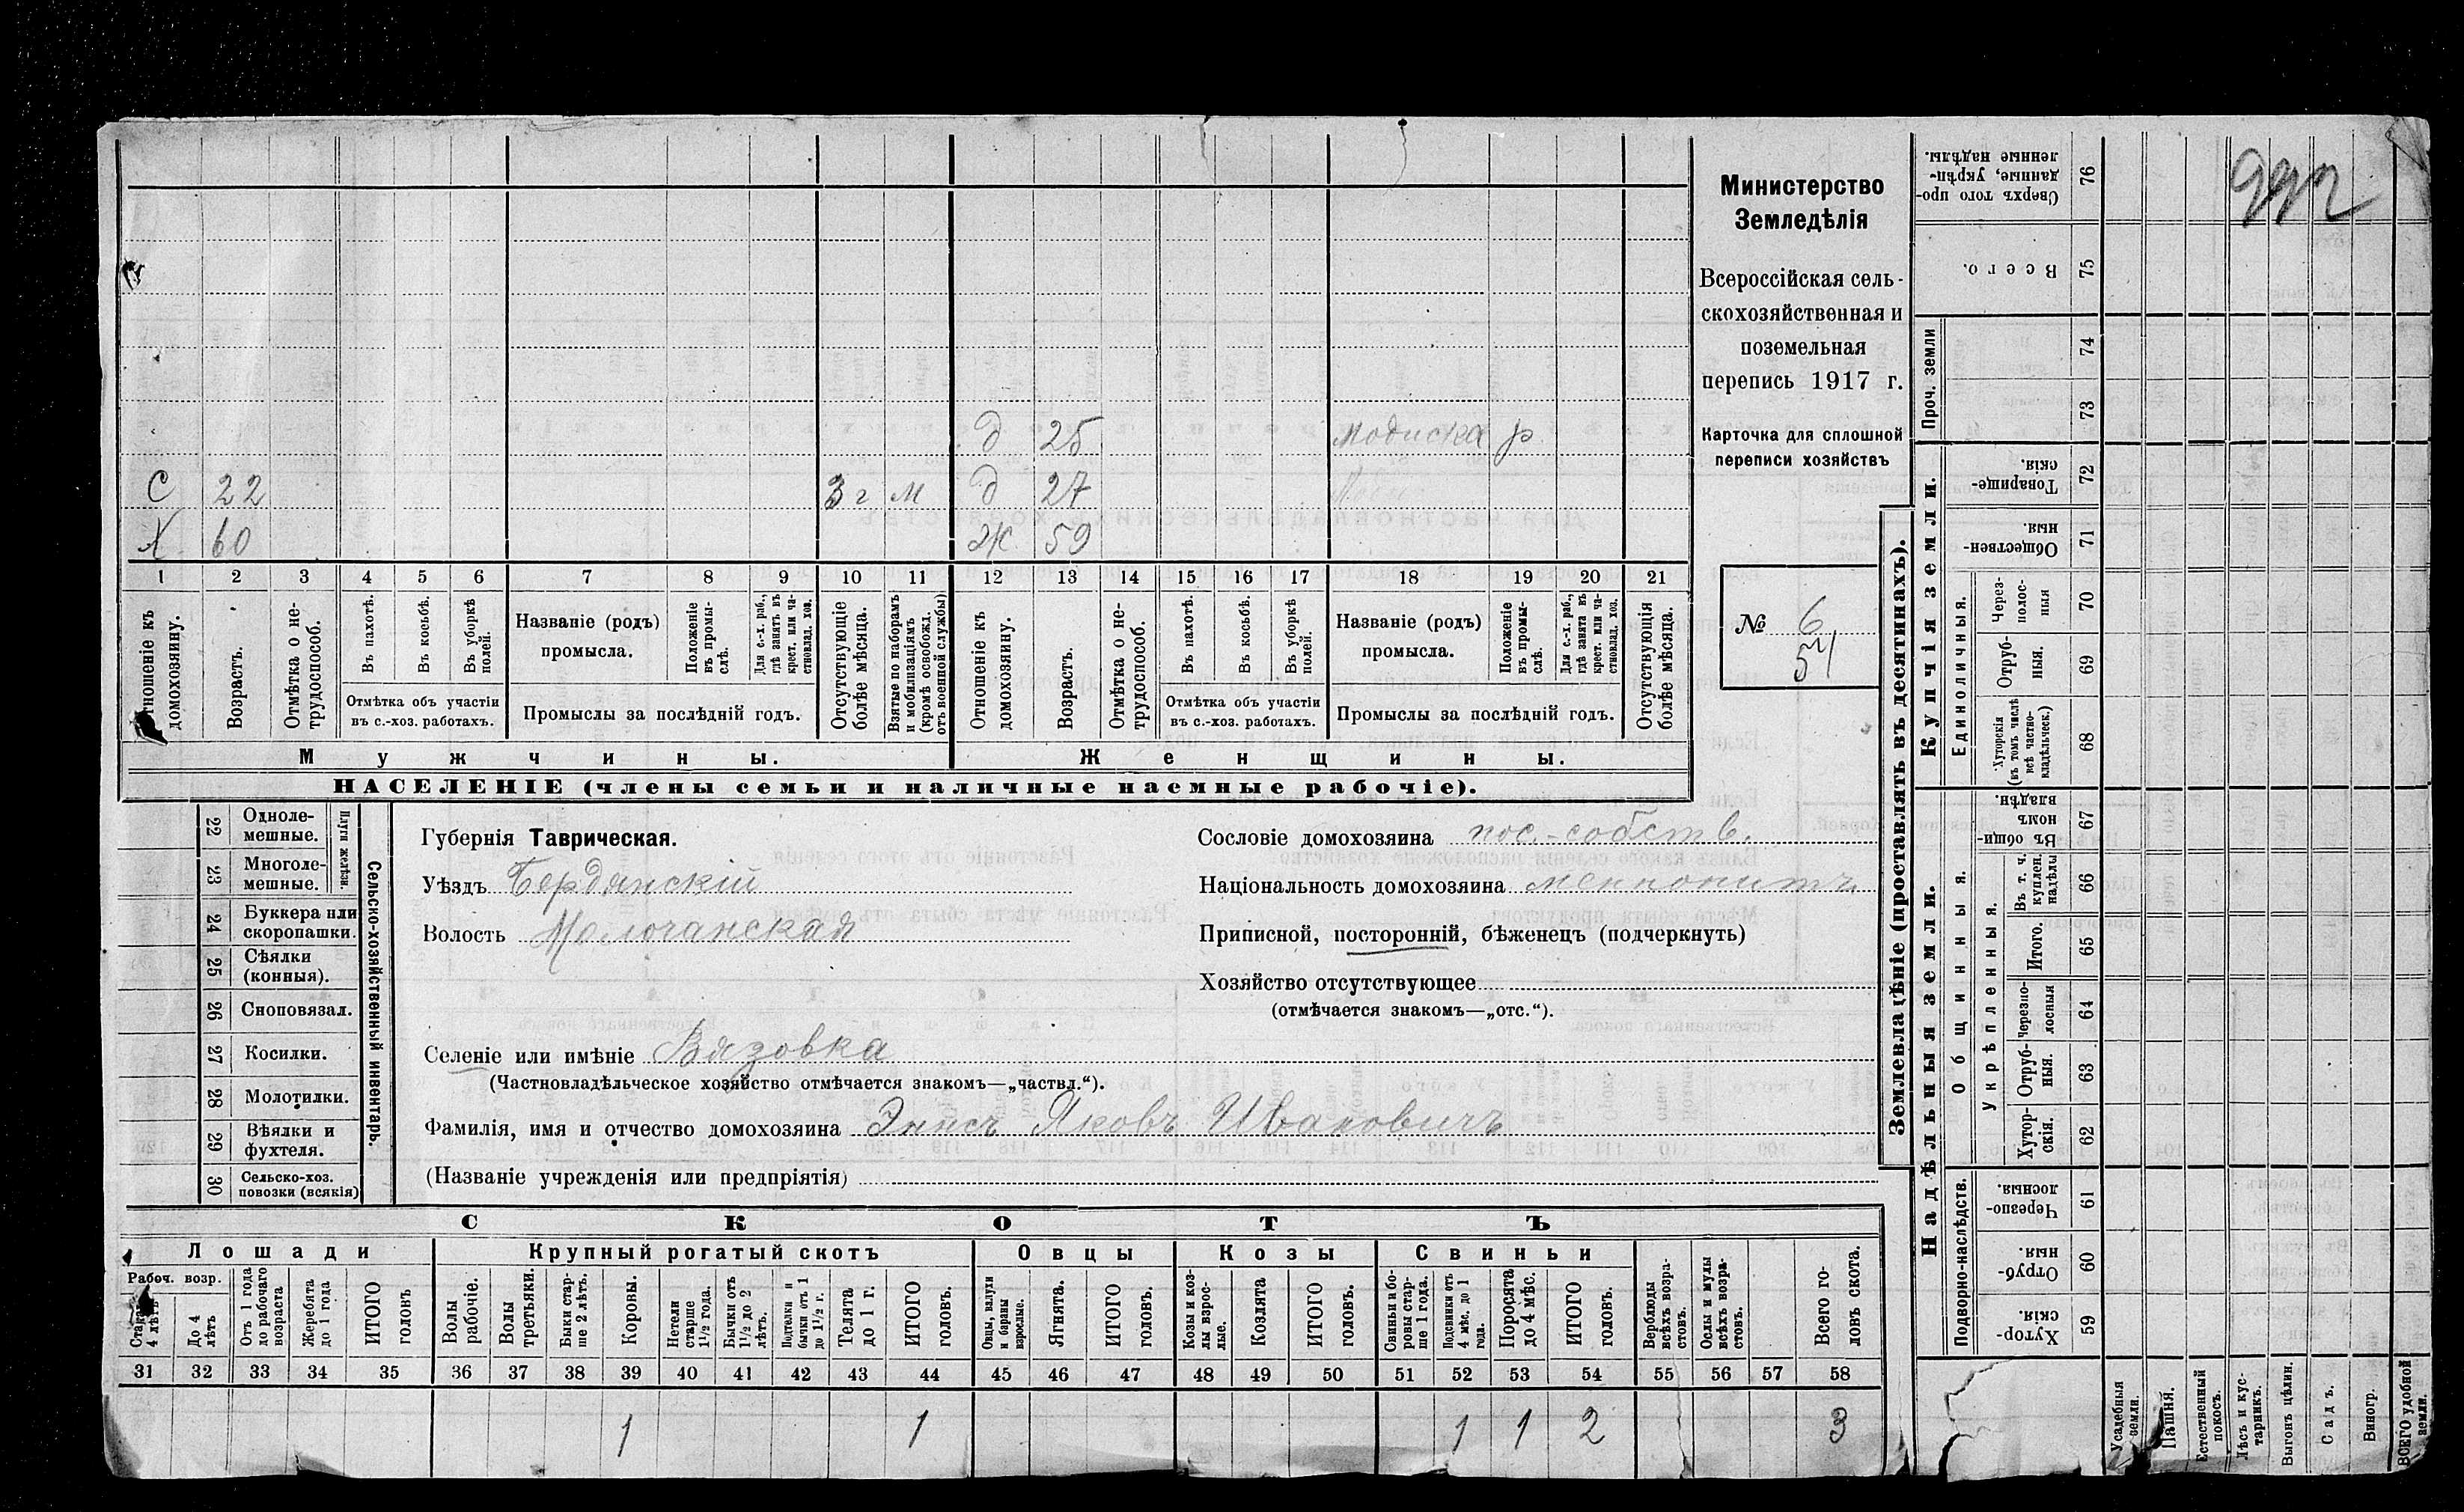 Министерство
Земледѣлія
Всероссійская сель-
скохозяйственная и
поземельная
перепись 1917 г.
Карточка для сплошной
переписи хозяйствъ
№ 6
54
д 25 модиска р
С 22 3 г м д 27
Х 60 Ж 59
1 2 3 4 5 6 7 8 9 10 11 12 13 14 15 16 17 18 19 20 21
домохозяину.
Возрастъ.
Отмѣтка о не-
трудоспособ.
Въ пахотѣ.
Въ косьбѣ.
Въ уборкѣ
полей.
Отмѣтка объ участіи
въ с.-хоз. работахъ.
Названіе (родъ)
промысла.
Положеніе
въ промы-
слѣ.
Для с.-х. раб.,
гдѣ занятъ въ
крест. или ча-
стновлад. хоз.
Промыслы за послѣдній годъ.
Отсутствующіе
болѣе мѣсяца.
Взятые по наборамъ
и мобилизаціямъ
(кромѣ освобожд.
отъ военной службы)
Отношеніе къ
домохозяину.
Возрастъ.
Отмѣтка о не-
трудоспособ.
Въ пахотѣ.
Въ косьбѣ.
Въ уборкѣ
полей.
Отмѣтка объ участіи
въ с.-хоз. работахъ.
Названіе (родъ)
промысла.
Положеніе
въ промы-
слѣ.
Для с.-х. раб.,
гдѣ занята въ
крест. или ча-
стновлад. хоз.
Промыслы за послѣдній годъ.
Отсутствующіе
болѣе мѣсяца.
Мужчины. Женщины.
НАСЕЛЕНІЕ (члены семьи и наличные наемные рабочіе).
22 Одноле-
мешные.
23 Многоле-
мешные.
24 Буккера или
скоропашки.
25 Сѣялки
(конныя).
26 Сноповязал.
27 Косилки.
28 Молотилки.
29 Вѣялки и
фухтеля.
30 Сельско-хоз.
повозки (всякія)
Плуги желѣзн.
Сельско-хозяйственный инвентарь.
Губернія Таврическая.
Уѣздъ Бердянскій
Волость Молочанская
Сословіе домохозяина пос.-собств.
Національность домохозяина меннонитъ
Приписной, посторонній, бѣженецъ (подчеркнуть)
Хозяйство отсутствующее
(отмѣчается знакомъ—„отс.“).
Селеніе или имѣніе Вязовка
(Частновладѣльческое хозяйство отмѣчается знакомъ—„частвл.“).
Фамилія, имя и отчество домохозяина Эннсъ Яковъ Ивановичъ
(Названіе учрежденія или предпріятія)
СКОТЪ
Лошади Крупный рогатый скотъ Овцы Козы Свиньи
Рабоч. возр.
4 лѣтъ
До 4
лѣтъ
Отъ 1 года
до рабочаго
возраста
Жеребята
до 1 года
ИТОГО
головъ
Волы
рабочіе.
Волы
третьяки.
Быки стар-
ше 2 лѣтъ.
Коровы.
Нетели
старше
1½ года.
Бычки отъ
1½ до 2
лѣтъ.
Подтелки и
бычки отъ 1
до 1½ г.
Телята
до 1 г.
ИТОГО
головъ.
Овцы, валухи
и бараны
взрослые.
Ягнята.
ИТОГО
головъ.
Козы и коз-
лы взрос-
лые.
Козлята
ИТОГО
головъ.
Свиньи и бо-
ровы стар-
ше 1 года.
Подсвинки отъ
4 мѣс. до 1
года.
Поросята
до 4 мѣс.
ИТОГО
головъ.
Верблюды
всѣхъ возра-
стовъ.
Ослы и мулы
всѣхъ возра-
стовъ.
Всего го-
ловъ скота.
31 32 33 34 35 36 37 38 39 40 41 42 43 44 45 46 47 48 49 50 51 52 53 54 55 56 57 58
1 1 1 1 2 3
Землевладѣніе (проставлять въ десятинахъ).
Купчія земли.
Надѣльныя земли.
Сверхъ того про-
данные, укрѣп-
ленные надѣлы.
76
Всего.
75
Проч. земли
74
73
Товарище-
скія.
72
Обществен-
ныя.
71
Единоличныя.
Через-
полос-
ныя
70
Отруб-
ныя.
69
Хуторскія
(въ томъ числѣ
всѣ частно-
владѣльческ.)
68
Общинныя.
Въ общин-
номъ
владѣн.
67
Укрѣпленныя.
Въ т. ч.
куплен.
надѣлы
66
Итого.
65
Черезпо-
лосныя
64
Отруб-
ныя.
63
Хутор-
скія.
62
Подворно-наслѣдств.
Черезпо-
лосныя.
61
Отруб-
ныя.
60
Хутор-
скія.
59
Усадебныя
земли.
Пашня.
Естественный
покосъ.
Лѣсъ и кус-
тарникъ.
Выгонъ цѣлин.
Садъ.
Виногр.
ВСЕГО удобной
земли.